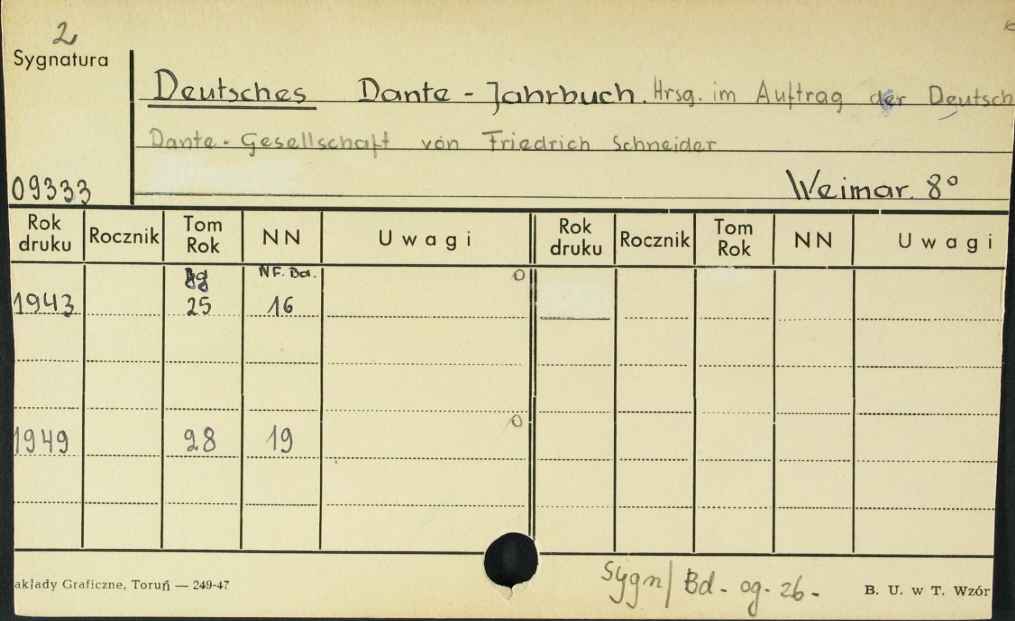 2
Sygnatura
Deutsches Dante-Jahrbuch. Hrsg. im Auftrag der Deutsch
Dante-Gesellschaft von Friedrich Schneider
09333 Weimar. 8°
Rok druku Rocznik Tom Rok NN Uwagi Rok druku Rocznik Tom Rok NN Uwagi
NF. Bd.
1943 25 16
1949 28 19
akłady Graficzne, Toruń — 249-47
Sygn/ Bd. og. 26-
B. U. w T. Wzór